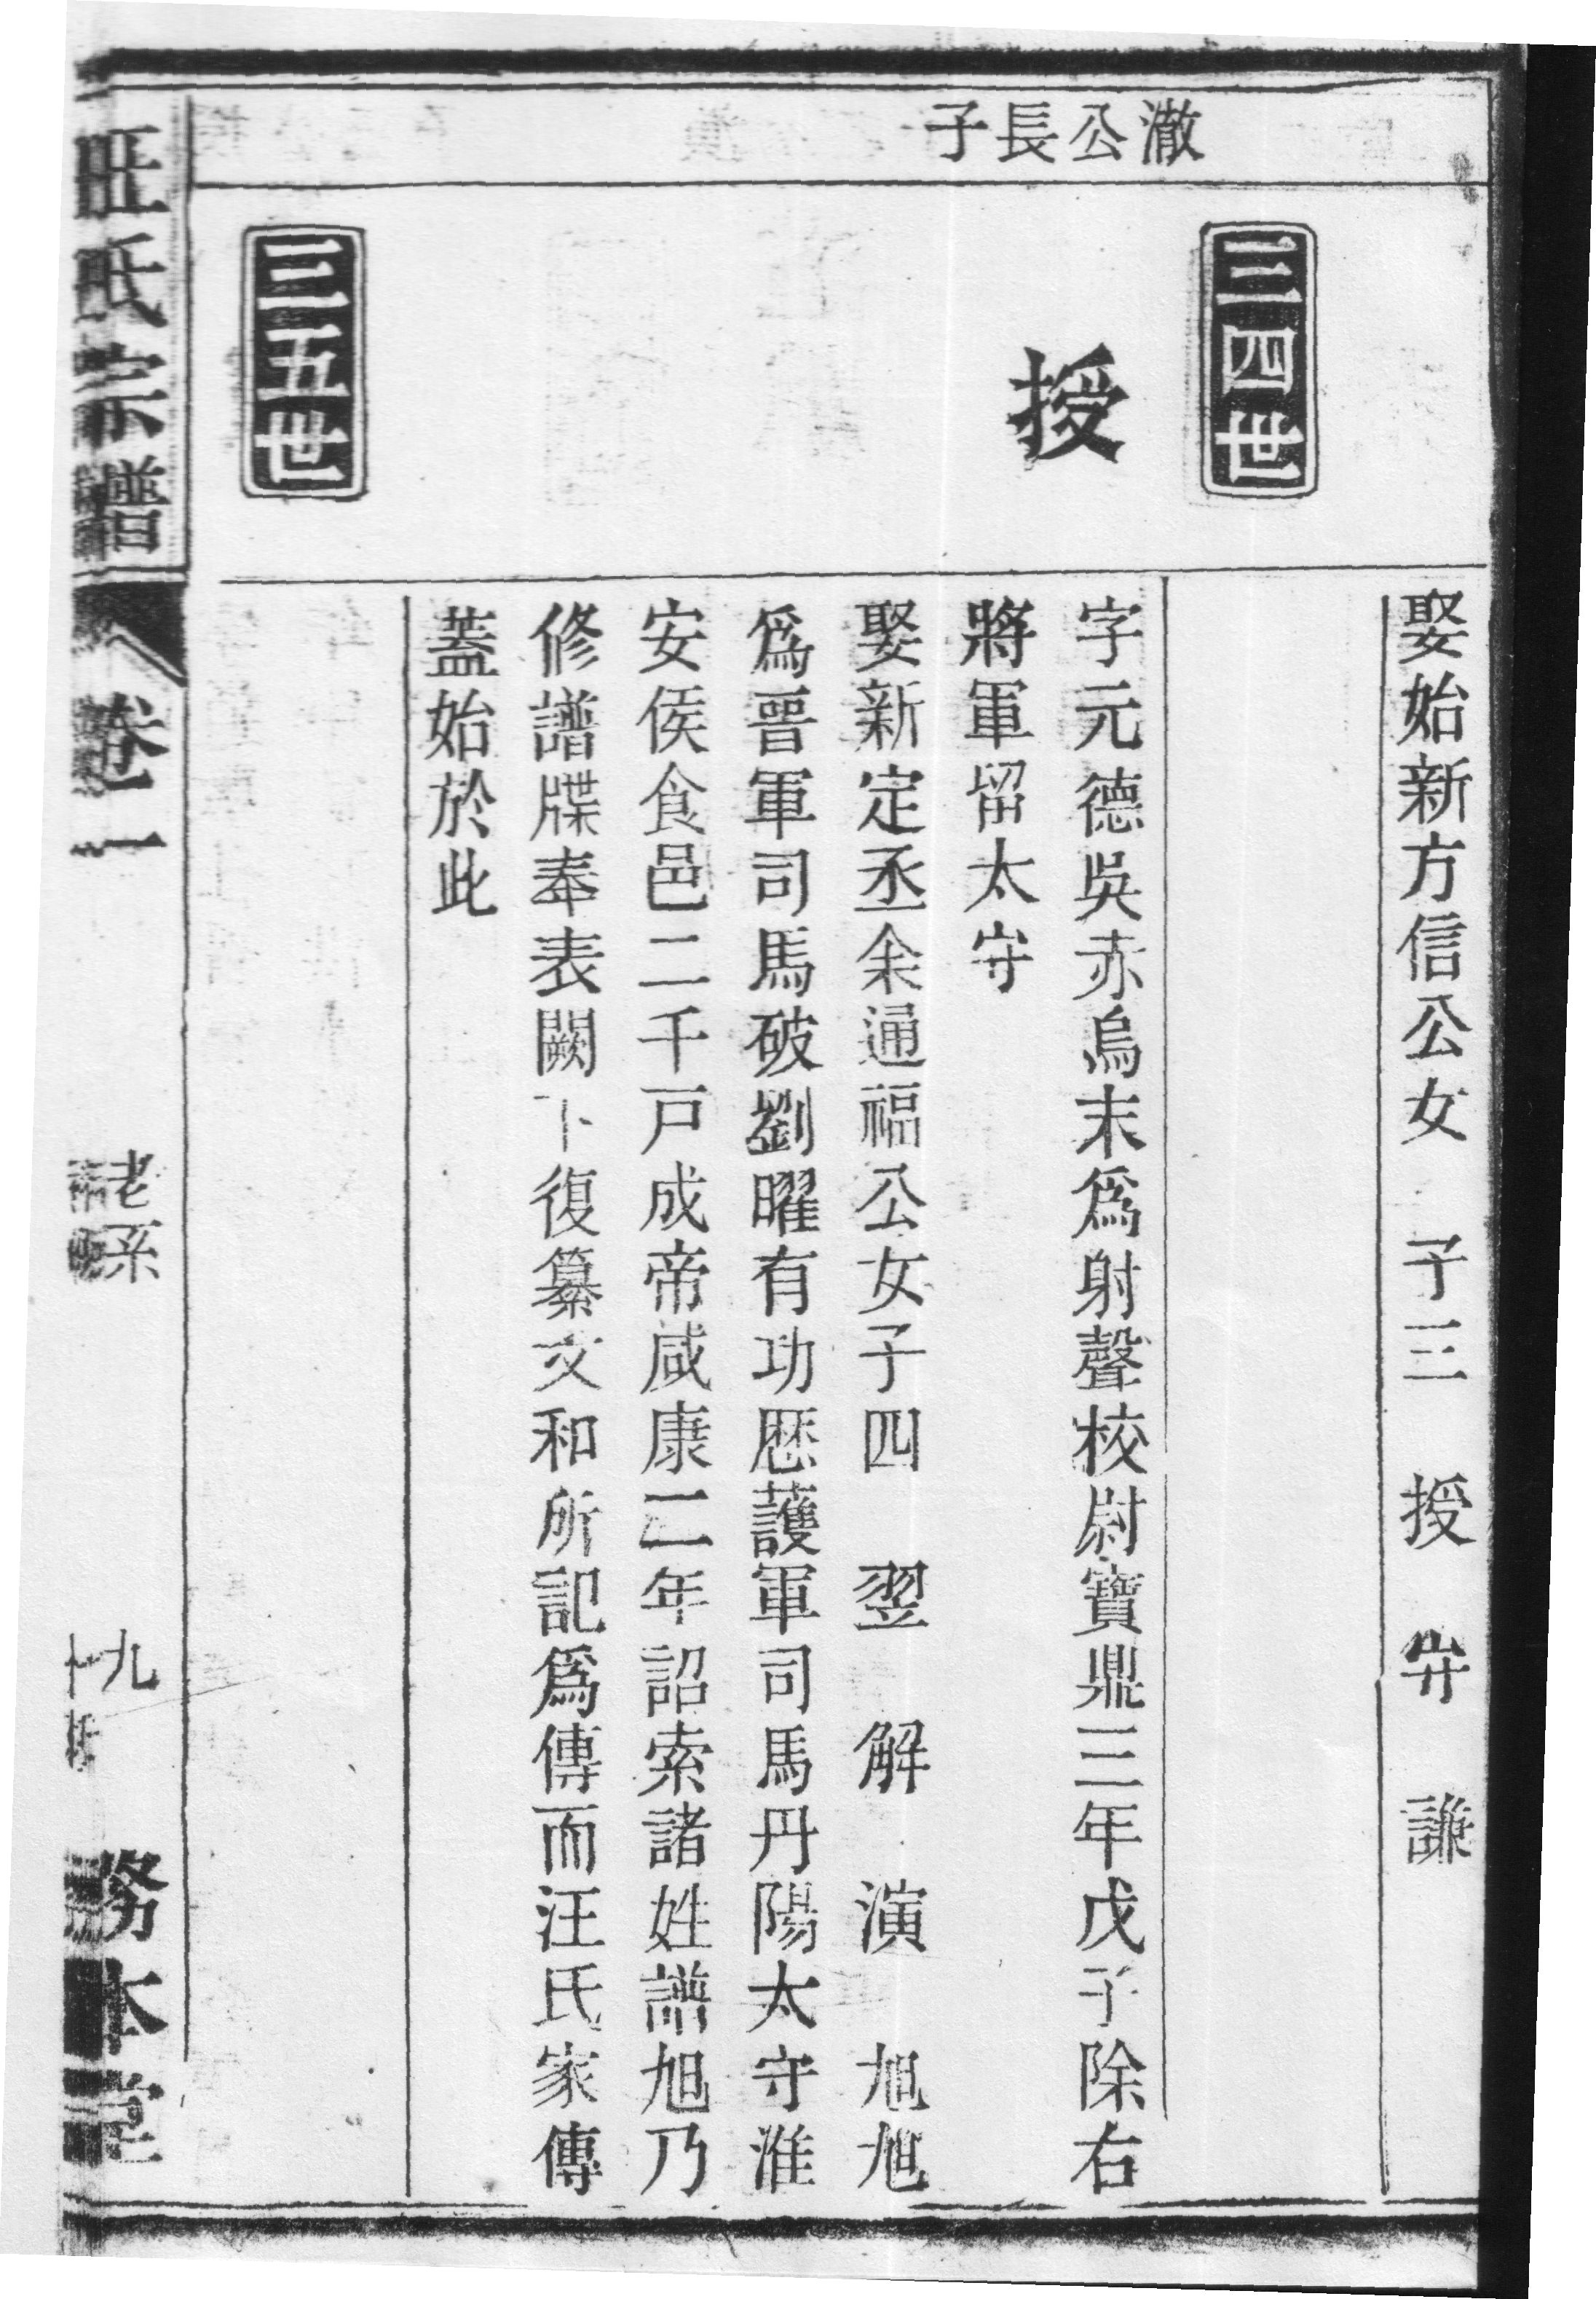 娶始新方信公女　子三　授　安　謙
澈公長子
三四世
授
字元德吳赤烏末爲射聲校尉寶鼎三年戊子除右
將軍留太守
娶新定丞余通福公女子四　翌　解　演　旭旭
爲晉軍司馬破劉曜有功歷護軍司馬丹陽太守淮
安侯食邑二千戸成帝咸康二年詔索諸姓譜旭乃
修譜牒奉表闕下復纂文和所記爲傳而汪氏家傳
蓋始於此
三五世
汪氏宗譜
卷一
老系
九
務本堂